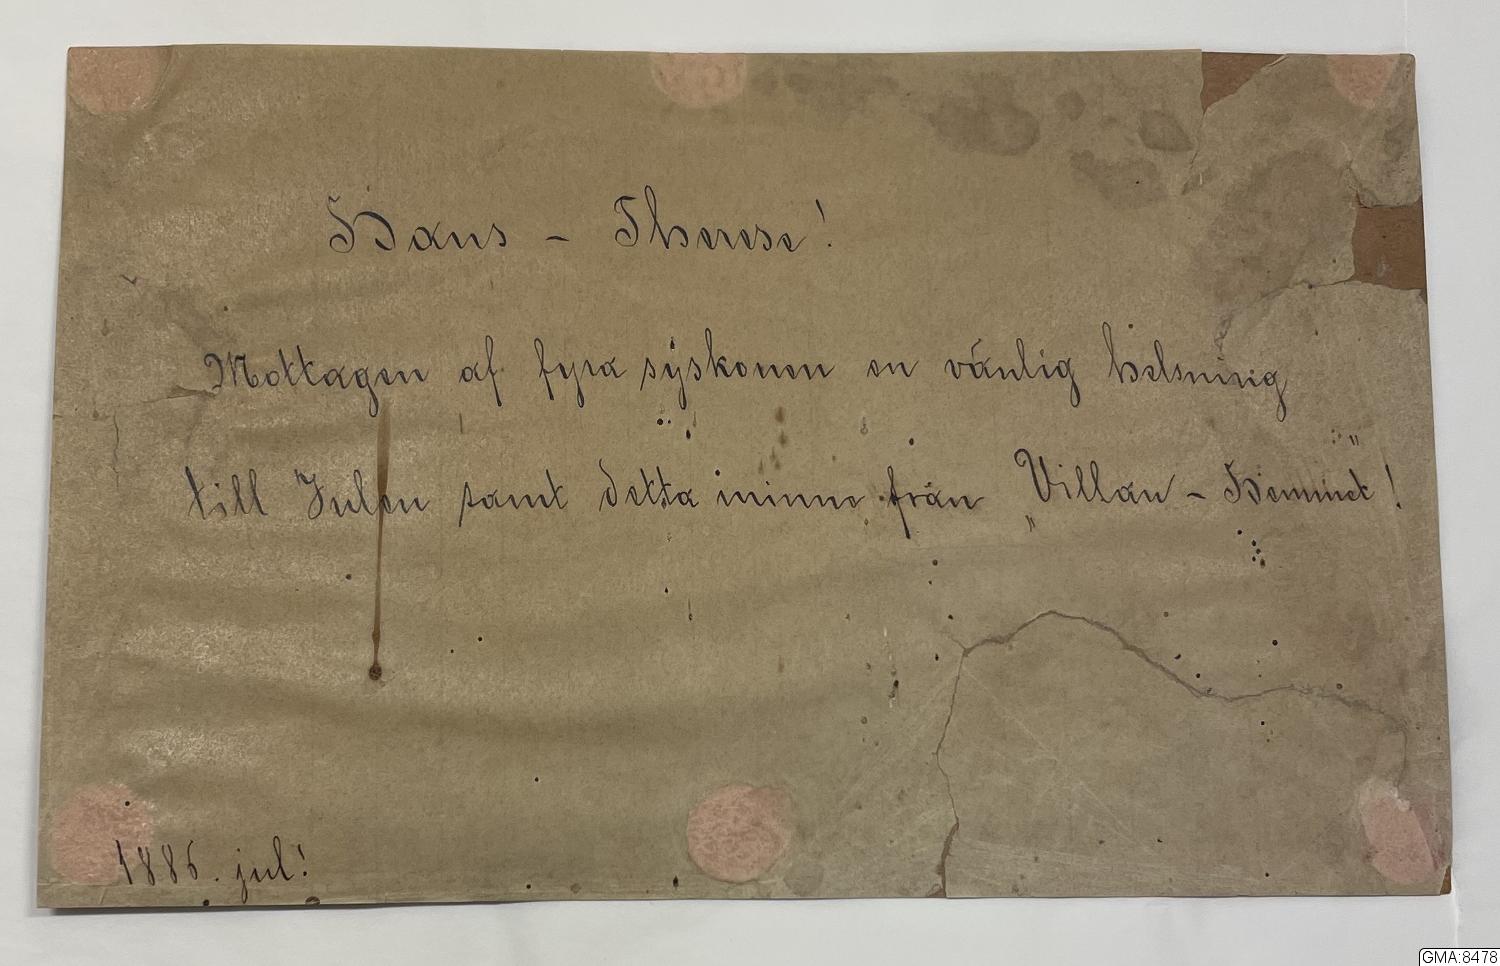 Hans - Therese!
Mottagen af fyra syskonen en vänlig helsning
till Julen samt detta minne från „Villan - Hemmet"!
1886. jul!
GMA:8478